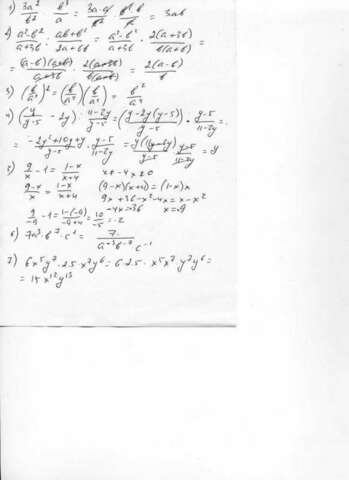 1) 3a²/b² · b³/a = 3a·a²/b² · b³·b/a = 3ab
2) a²-b²/a+3b : ab+b²/2a+6b = a²-b²/a+3b · 2(a+3b)/b(a+b) =
= (a-b)(a+b)/a+3b · 2(a+3b)/b(a+b) = 2(a-b)/b
3) (b/a²)² = (b/a²)(b/a²) = b²/a⁴
4) (y/y-5 - 2y) : 11-2y/y-5 = (y-2y(y-5)/y-5) · y-5/11-2y =
= -2y²+10y+y/y-5 · y-5/11-2y = y(11-2y)/y-5 · y-5/11-2y = y
5) 9/x - 1 = 1-x/x+4 x+-4 x≠0
9-x/x = 1-x/x+4 (9-x)(x+4) = (1-x)x
9x+36-x²-4x = x-x²
9/-9 - 1 = 1-(-9)/-9+4 = 10/-5 = -2 -4x=36 x=-9
6) 7a³·b⁻²·c¹ = 7/a⁻³b⁻²c⁻¹
7) 6x⁵y⁷·2.5x⁷y⁶ = 6·2.5·x⁵x⁷·y⁷y⁶ =
= 15x¹²y¹³